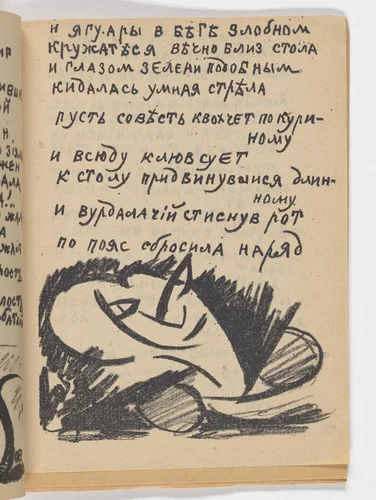 и ягуары в бѣгѣ злобном
кружатѣся вѣчно близ стола
и глазом зелени подобным
кидалась умная стрѣла
пусть совѣсть квохчет по кури-
ному
и всюду клюв сует
к столу придвинувшися длин-
ному
и вурдалачiй стиснув рот
по пояс сбросила наряд